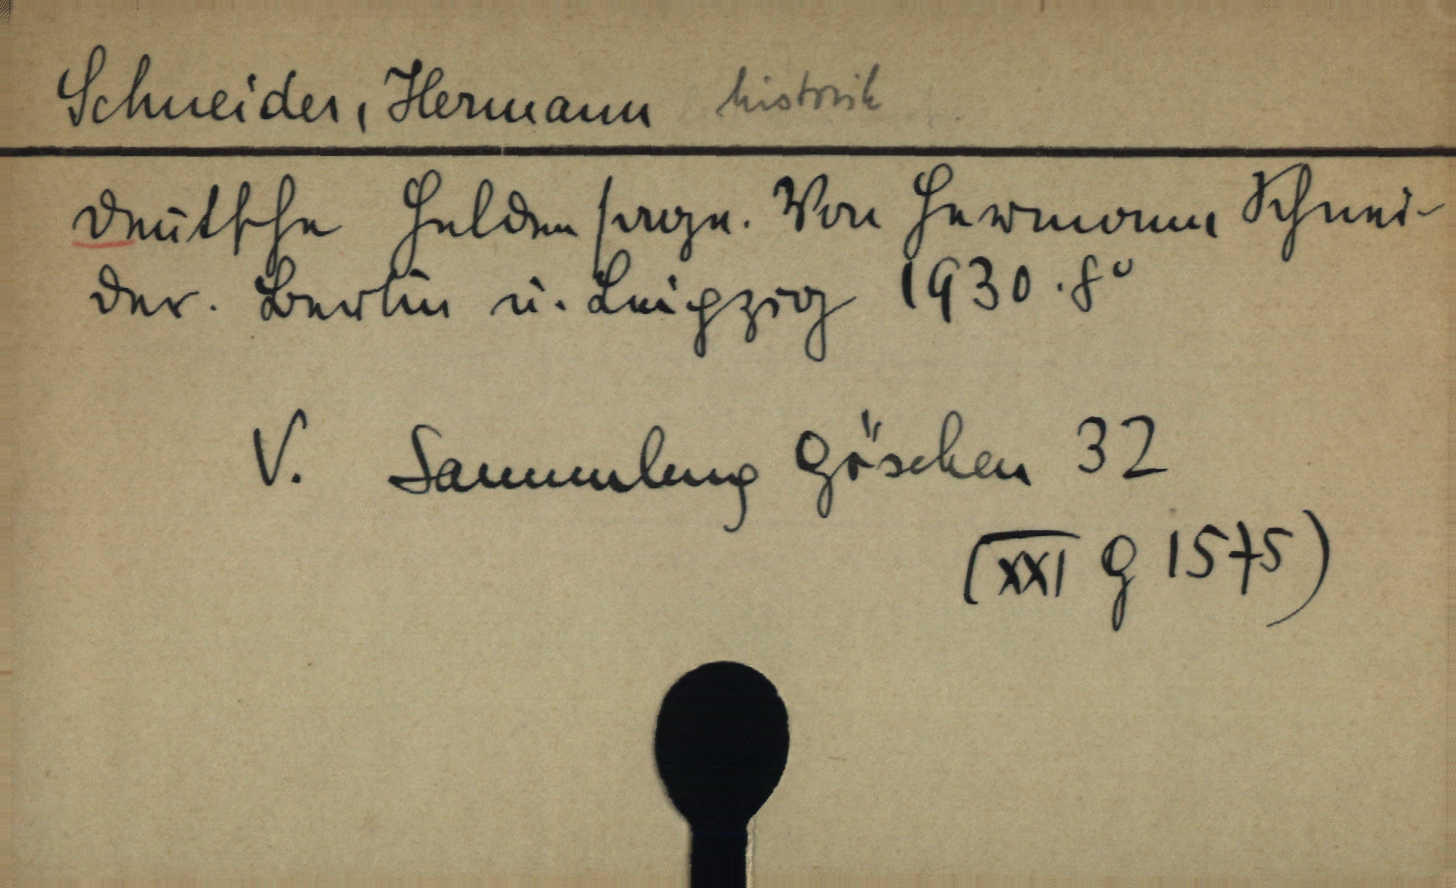 Schneider, Hermann historik
Deutsche Heldensage. Von Hermann Schnei-
der. Berlin u. Leipzig 1930. 8°
V. Sammlung Göschen 32
(XXI G 1575)